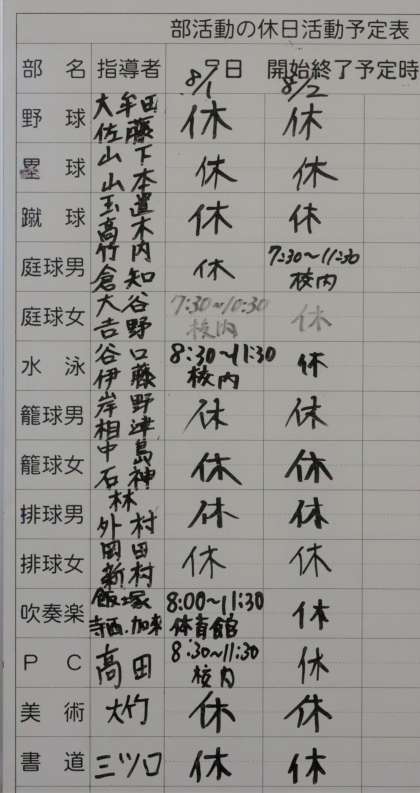 部活動の休日活動予定表
部名 指導者 8/1 日 開始終了予定時 8/2
野球 大牟田 佐藤 休 休
塁球 山下 山本 休 休
蹴球 玉置 高木 休 休
庭球男 竹内 倉知 休 7:30〜11:30 校内
庭球女 大谷 吉野 7:30〜10:30 校内 休
水泳 谷口 伊藤 8:30〜11:30 校内 休
籠球男 岸野 相津 休 休
籠球女 中島 石神 休 休
排球男 林 外村 休 休
排球女 岡田 新村 休 休
吹奏楽 飯塚 寺西.加来 8:00〜11:30 体育館 休
PC 高田 8:30〜11:30 校内 休
美術 大竹 休 休
書道 三ツ口 休 休